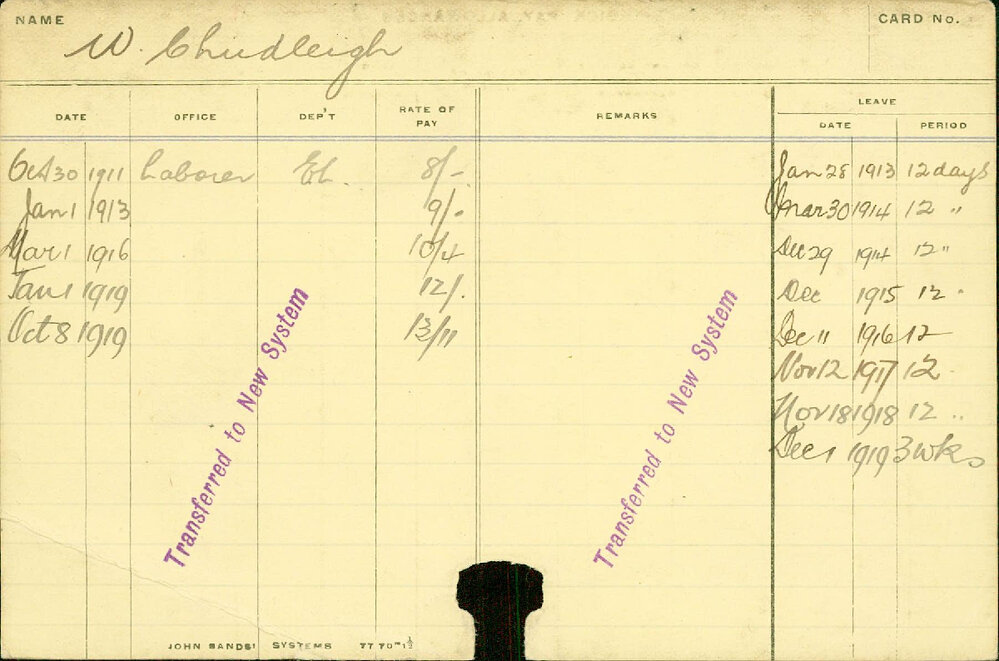 NAME
CARD No.
W. Chudleigh
LEAVE
DATE OFFICE DEP'T RATE OF PAY REMARKS DATE PERIOD
Oct 30 1911 Laborer El. 8/- Jan 28 1913 12 days
Jan 1 1913 9/- Mar 30 1914 12 "
Mar 1 1916 10/4 Dec 29 1914 12 "
Jan 1 1919 12/- Dec 1915 12 "
Oct 8 1919 13/11 Dec 11 1916 12
Nov 12 1917 12
Nov 18 1918 12 "
Dec 1 1919 3 wks
Transferred to New System
Transferred to New System
JOHN SANDS' SYSTEMS